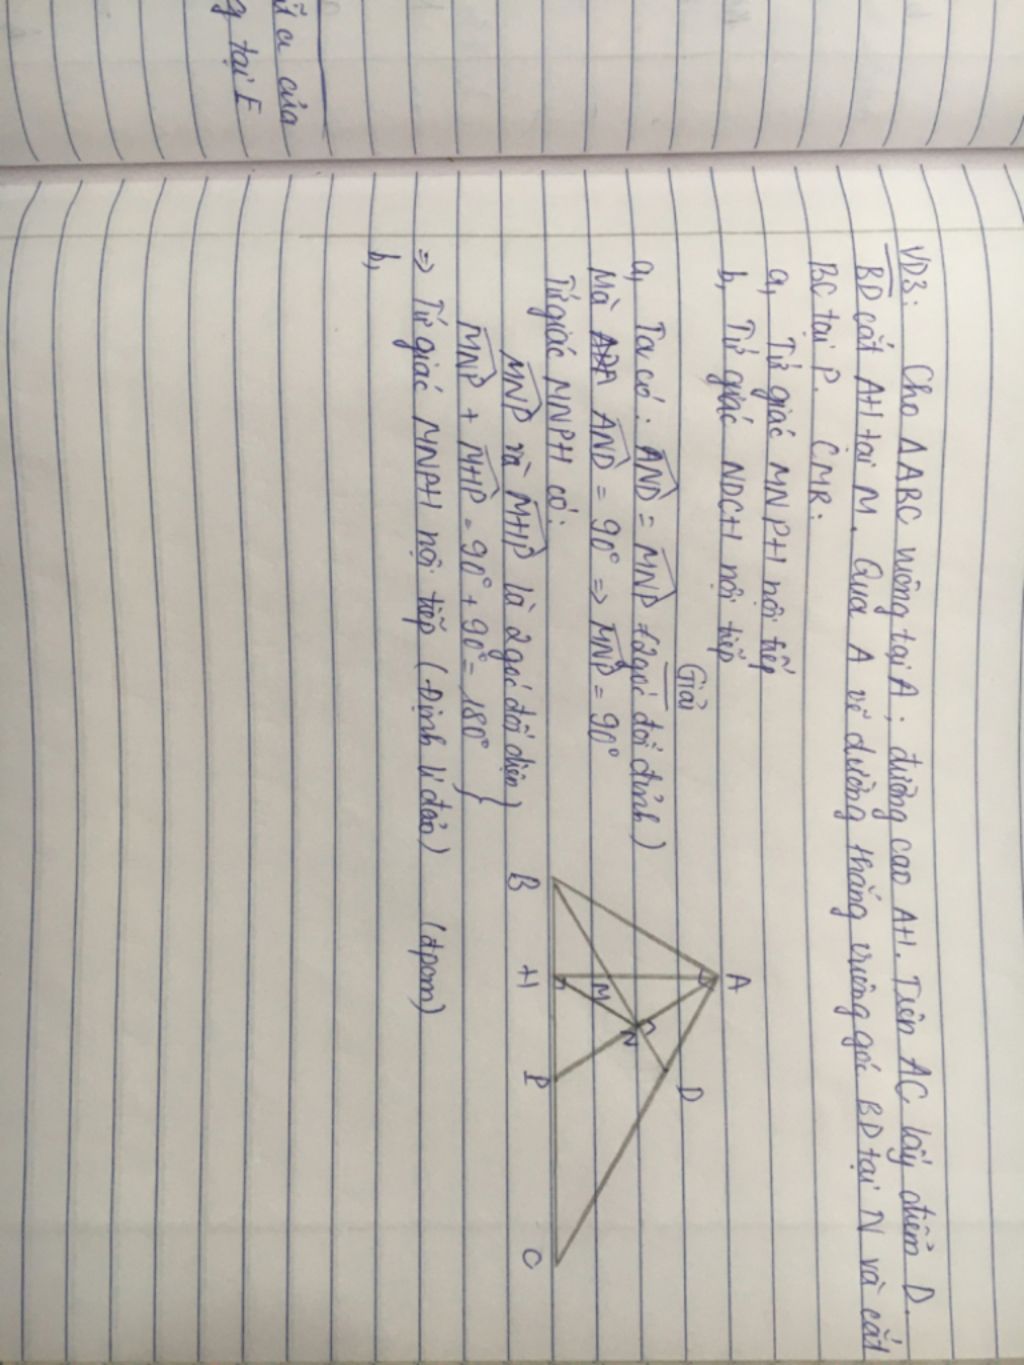 ữa của
g tại E
VD3: Cho ΔABC vuông tại A; đường cao AH. Trên AC lấy điểm D.
BD cắt AH tại M. Qua A vẽ đường thẳng vuông góc BD tại N và cắt
BC tại P. CMR:
a, Tứ giác MNPH nội tiếp
b, Tứ giác NDCH nội tiếp
Giải
a, Ta có: \widehat{AND} = \widehat{MNP} (2 góc đối đỉnh)
Mà \widehat{AND} = 90° => \widehat{MNP} = 90°
Tứ giác MNPH có:
\widehat{MNP} và \widehat{MHP} là 2 góc đối diện)
\widehat{MNP} + \widehat{MHP} = 90° + 90° = 180° }
=> Tứ giác MNPH nội tiếp (Định lí đảo) (đpcm)
b,
A
D
N
M
B H P C